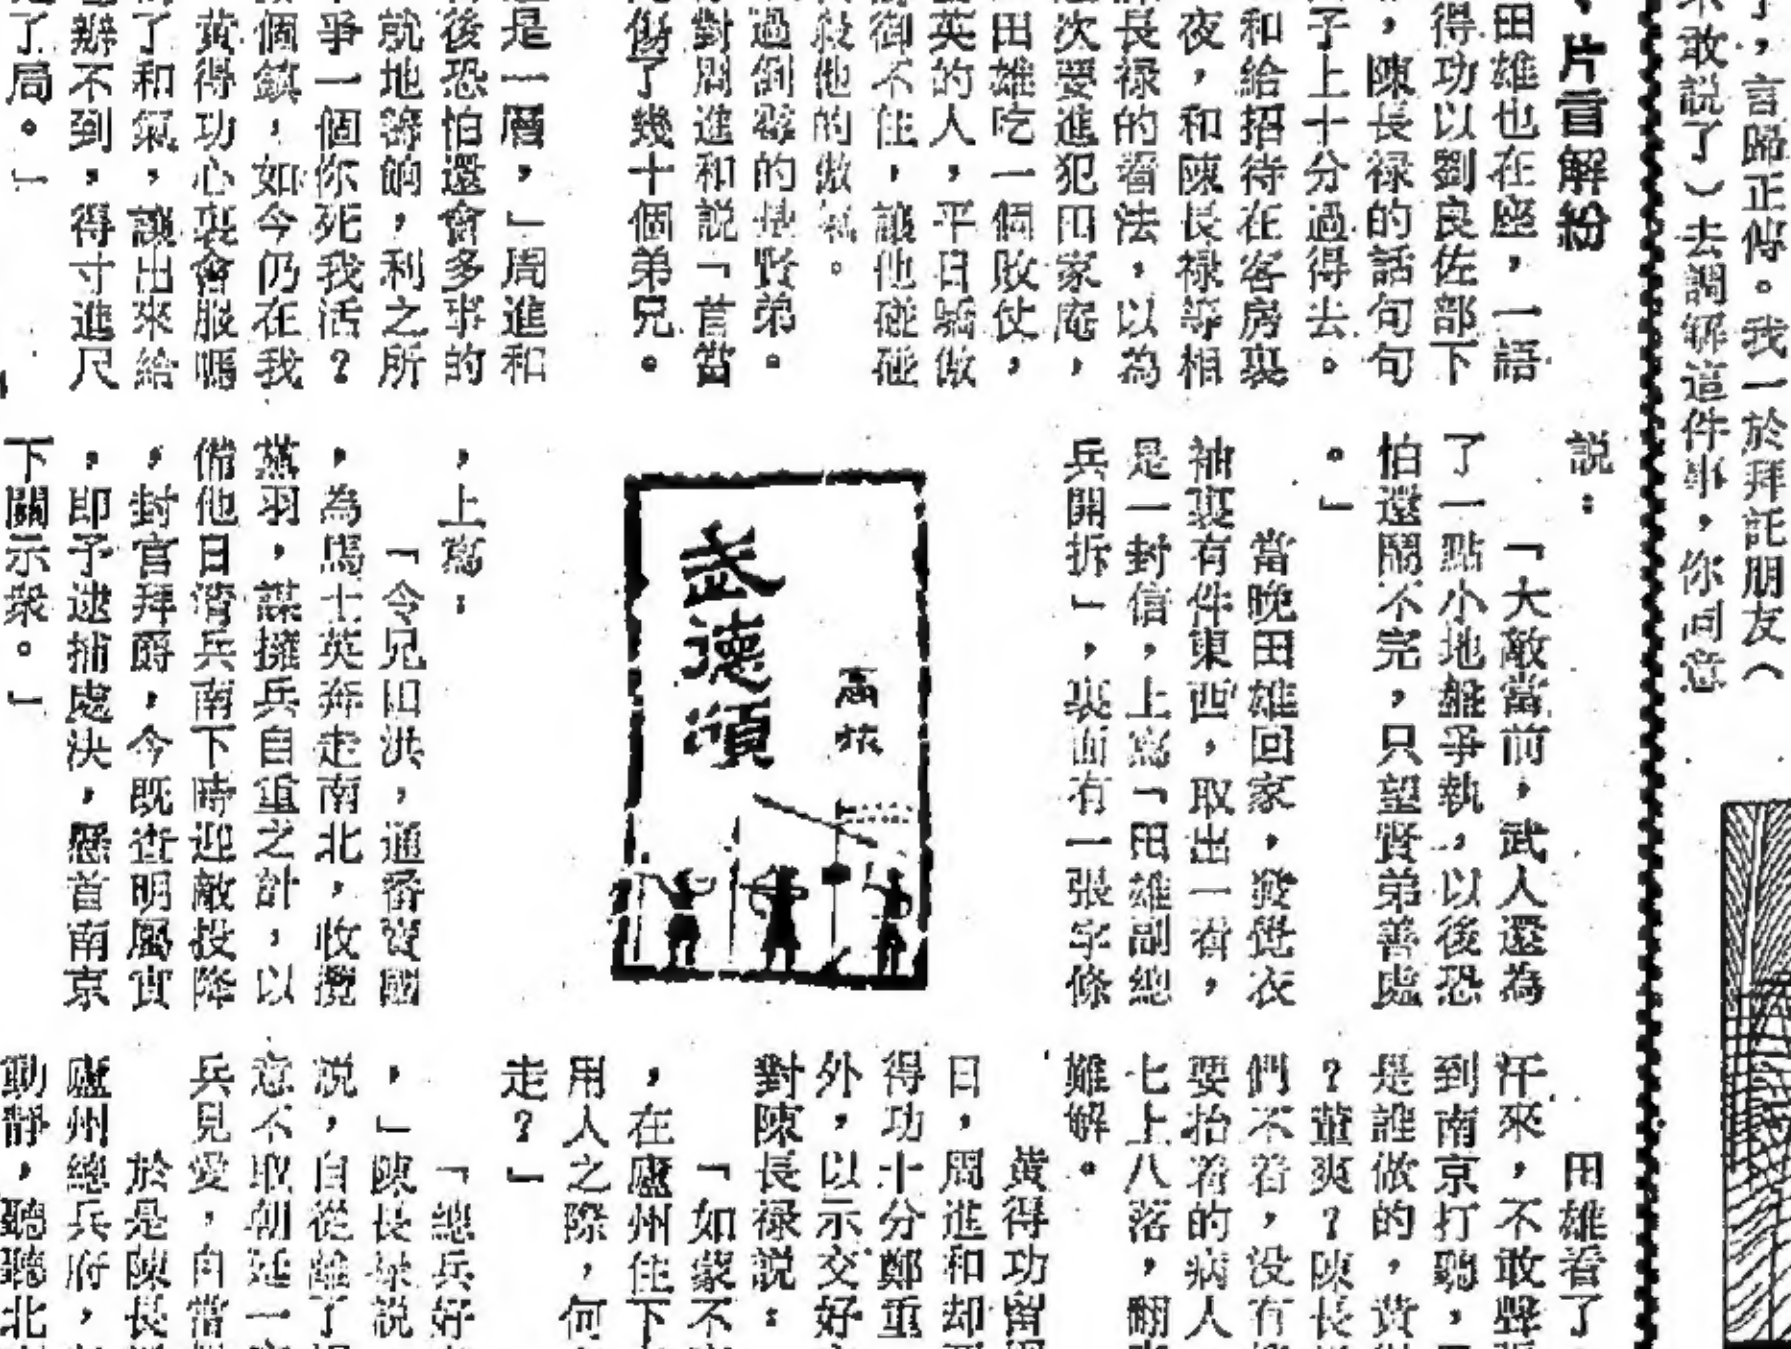 了，言歸正傳。我一於拜託朋友（
不敢説了）去調解這件事，你同意
，片言解紛
田雄也在座，一語
得功以劉良佐部下
，陳長禄的話句句
子上十分過得去。
和給招待在客房裏
夜，和陳長禄等相
長禄的看法，以為
次要進犯田家庵，
田雄吃一個敗仗，
英的人，平日驕傲
御不住，讓他碰碰
殺他的傲氣。
過倒霉的是賢弟。
對周進和説「首當
傷了幾十個弟兄。
是一層，」周進和
後恐怕還會多事的
就地籌餉，利之所
爭一個你死我活？
個鎮，如今仍在我
黃得功心裏會服嗎
了和氣，讓出來給
辦不到，得寸進尺
了局。」
説：
「大敵當前，武人還為
了一點小地盤爭執，以後恐
怕還鬧不完，只望賢弟善處
。」
當晚田雄回家，發覺衣
袖裏有件東西，取出一看，
是一封信，上寫「田雄副總
兵開拆」，裏面有一張字條
武德頌
高旅
，上寫：
「令兄田洪，通番賣國
，為馬士英奔走南北，收攬
黨羽，謀擁兵自重之計，以
備他日清兵南下時迎敵投降
，封官拜爵，今既查明屬實
，即予逮捕處決，懸首南京
下關示眾。」
田雄看了
汗來，不敢聲
到南京打聽，
是誰做的，黃
？董爽？陳長
們不着，没有
要抬着的病人
七上八落，翻
難解。
黃得功留
日，周進和却
得功十分鄭重
外，以示交好
對陳長禄説：
「如蒙不
，在廬州住下
用人之際，何
走？」
「總兵好
，」陳長禄説
説，自從離了
意不取朝廷一
兵見愛，自當
於是陳長
廬州總兵府，
動靜，聽聽北